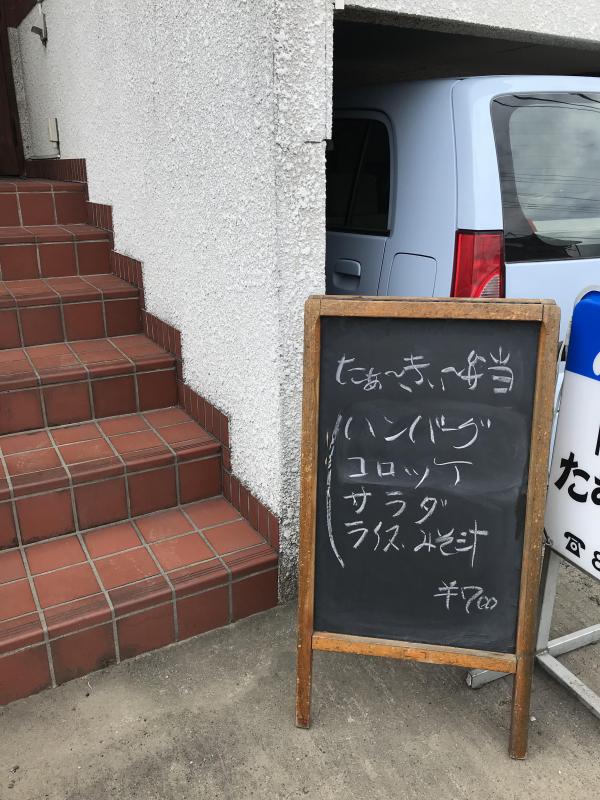 たぁ〜き〜弁当
ハンバーグ
コロッケ
サラダ
ライス みそ汁
¥700
た
☎8